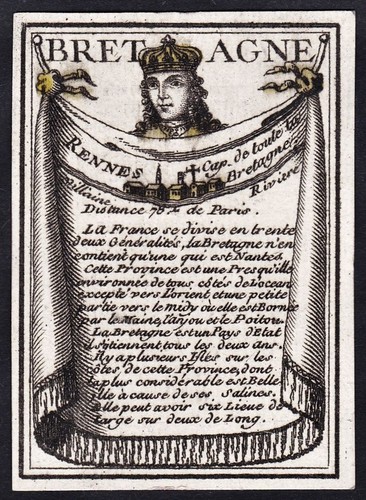 BRETAGNE
RENNES Cap. de toute la
Bretagne
Villaine Riviere
Distance 78 L. de Paris.
La France se divise en trente
deux Généralités, la Bretagne n'en
contient qu'une qui est Nantes
Cette Province est une Presqu'ille
environnée de tous côtés de l'ocean
excepté vers L'orient et une petite
partie vers le midy ou elle est Bornée
par le Maine, l'Anjou et le Poitou.
La Bretagne est un Pays d'Etat
ils s'tiennent tous les deux ans.
Il y a plusieurs Isles sur les
côtes de cette Province, dont
la plus considérable est Belle
ille à cause de ses Salines.
elle peut avoir six Lieue de
large sur deux de Long.